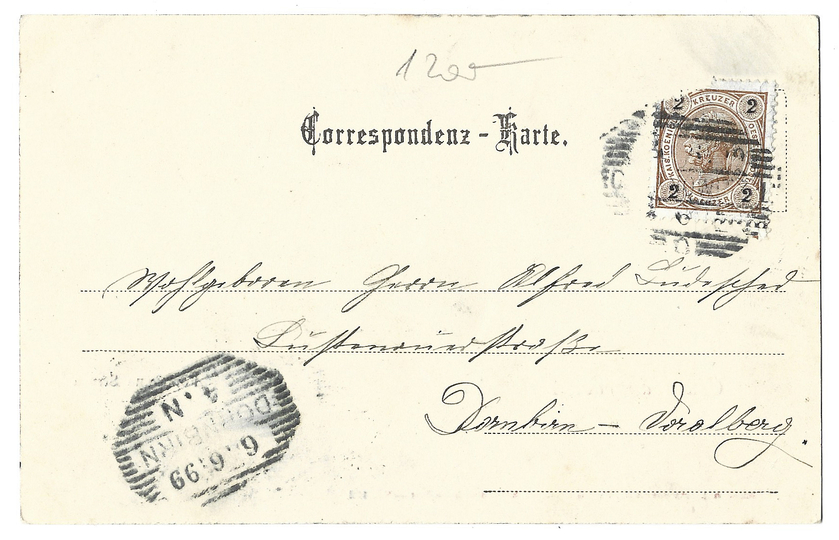 1200
Correspondenz-Karte.
2 KREUZER 2
KAIS. KOENIG.
2 KREUZER 2
Wohlgeboren Herrn Alfred Lüdesched
Lustenauerstraße
Dornbirn – Voralberg.
4.N
DORNBIRN
6.6.99